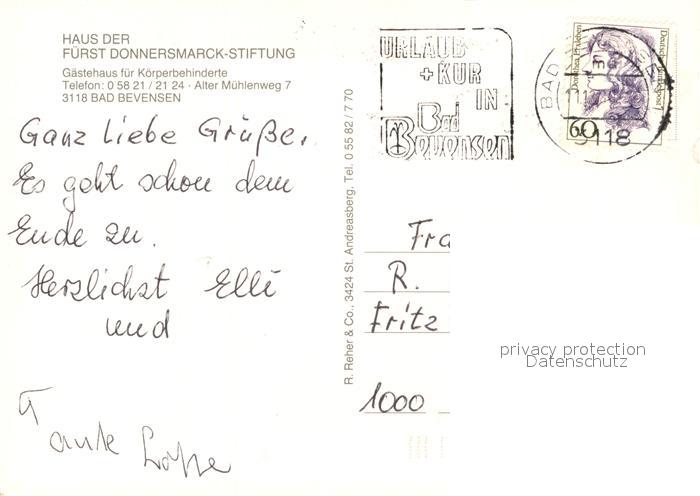 HAUS DER
FÜRST DONNERSMARCK-STIFTUNG
Gästehaus für Körperbehinderte
Telefon: 0 58 21 / 21 24 · Alter Mühlenweg 7
3118 BAD BEVENSEN
Ganz liebe Grüße.
Es geht schon dem
Ende zu.
Herzlichst Elli
und
Tante
R. Reher & Co., 3424 St. Andreasberg, Tel. 0 55 82 / 7 70
URLAUB
+ KUR
IN
Bad
Bevensen
BAD
3118
60
Deutsche Bundespost
Fra
R.
Fritz
1000
privacy protection
Datenschutz